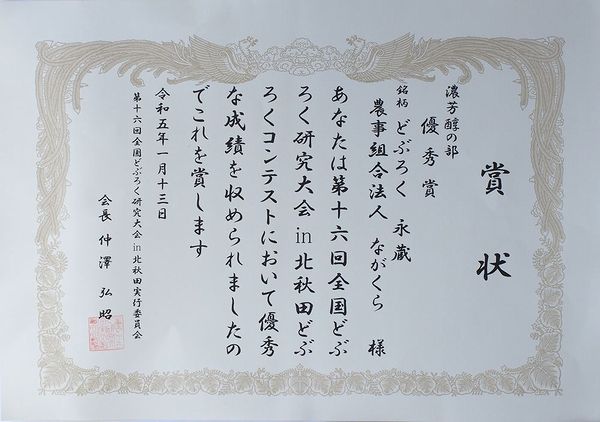 賞状
濃芳醇の部
優秀賞
銘柄 どぶろく 永蔵
農事組合法人 ながくら 様
あなたは第十六回全国どぶ
ろく研究大会in北秋田どぶ
ろくコンテストにおいて優秀
な成績を収められましたの
でこれを賞します
令和五年一月十三日
第十六回全国どぶろく研究大会in北秋田実行委員会
会長 仲澤 弘昭